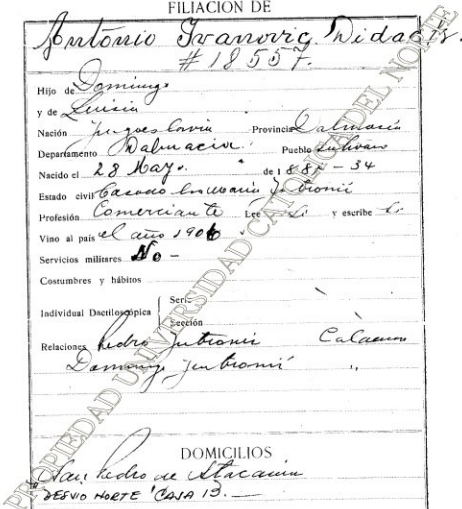 FILIACION DE
Antonio Ivanovic Didacis.
# 18557.
Hijo de Domingo
y de Luisia
Nación Yugoeslavia Provincia Dalmacia
Departamento Dalmacia Pueblo
Nacido el 28 Mayo de 1 88 - 34
Estado civil Casado con Maria
Profesión Comerciante Lee Si y escribe Si
Vino al pais el año 1906
Servicios militares No -
Costumbres y hábitos
Individual Dactiloscópica Serie
Sección
Relaciones Pedro Calama
Domingo "
DOMICILIOS
San Pedro de Atacama
DESVIO NORTE CASA 13. -
PROPIEDAD UNIVERSIDAD CATOLICA DEL NORTE